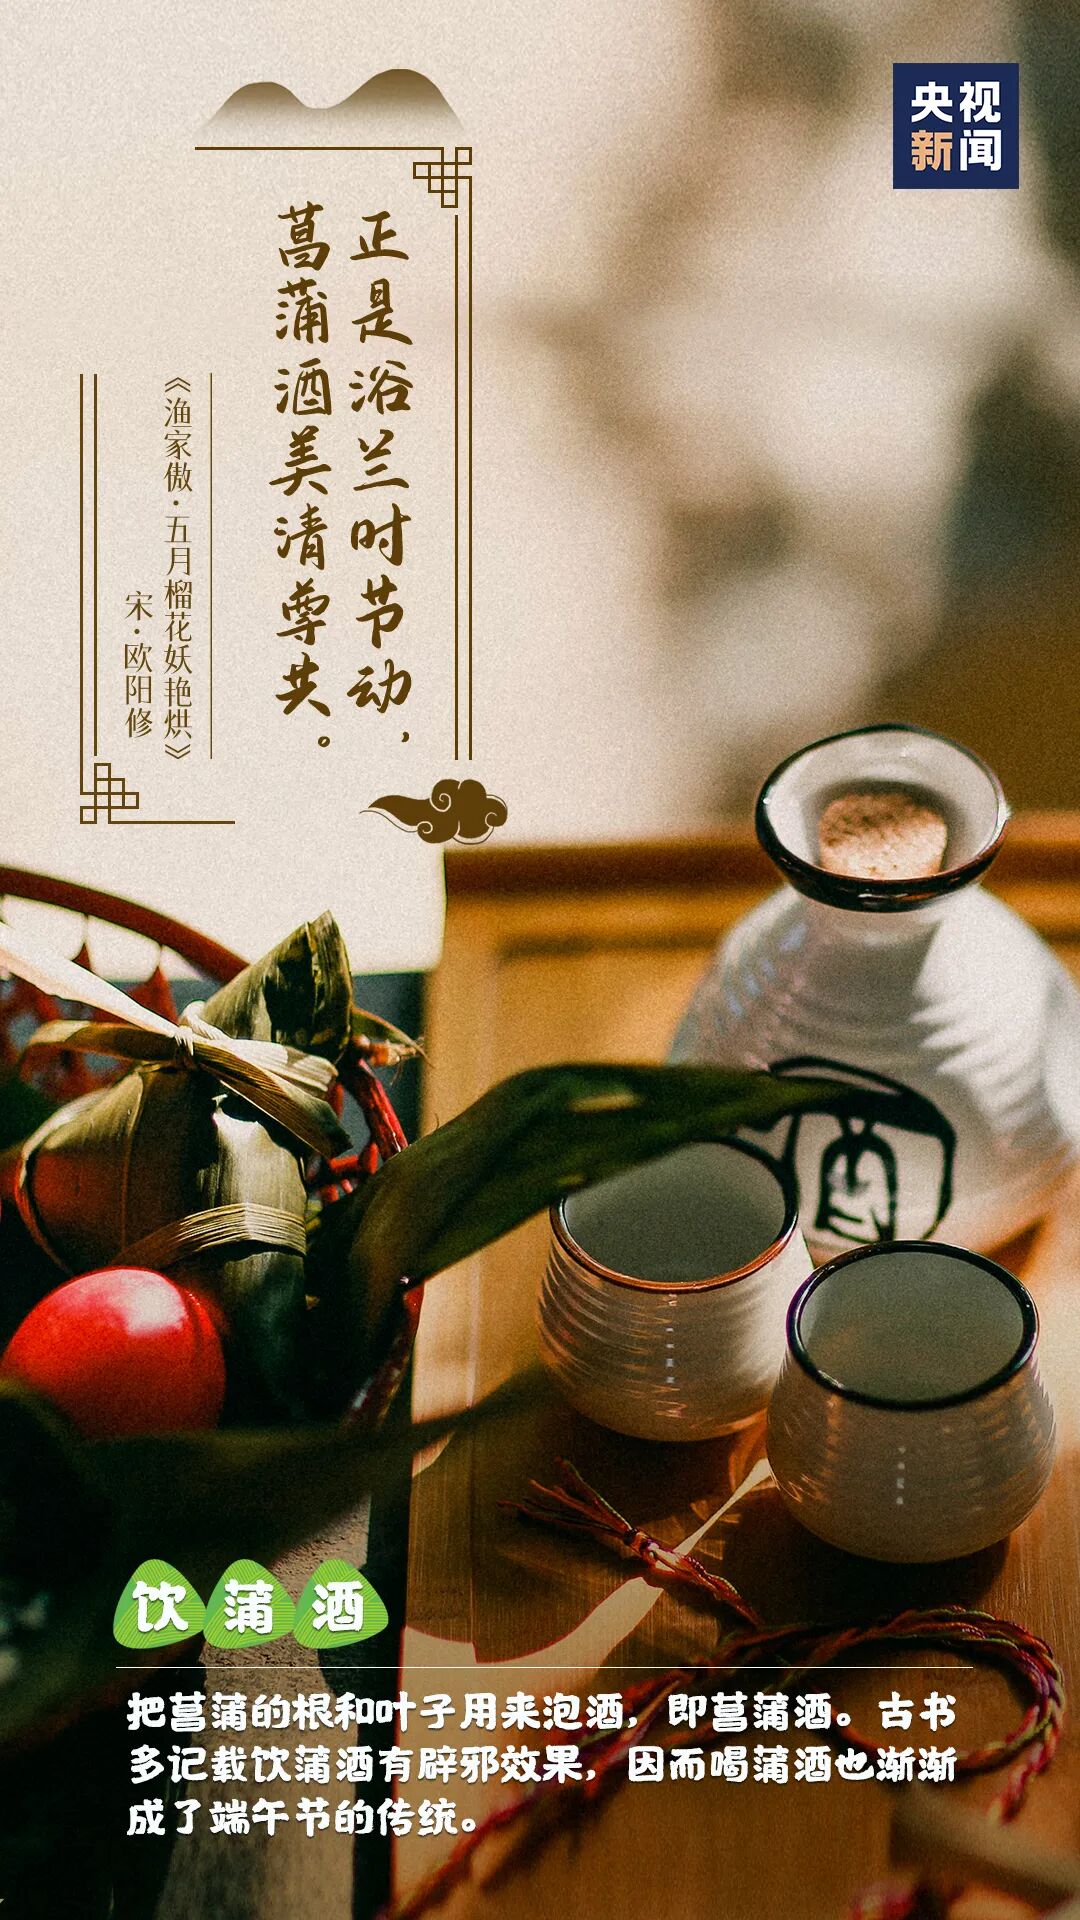 央视
新闻
正是浴兰时节动，
菖蒲酒美清尊共。
《渔家傲·五月榴花妖艳烘》
宋·欧阳修
酒
饮蒲酒
把菖蒲的根和叶子用来泡酒，即菖蒲酒。古书
多记载饮蒲酒有辟邪效果，因而喝蒲酒也渐渐
成了端午节的传统。